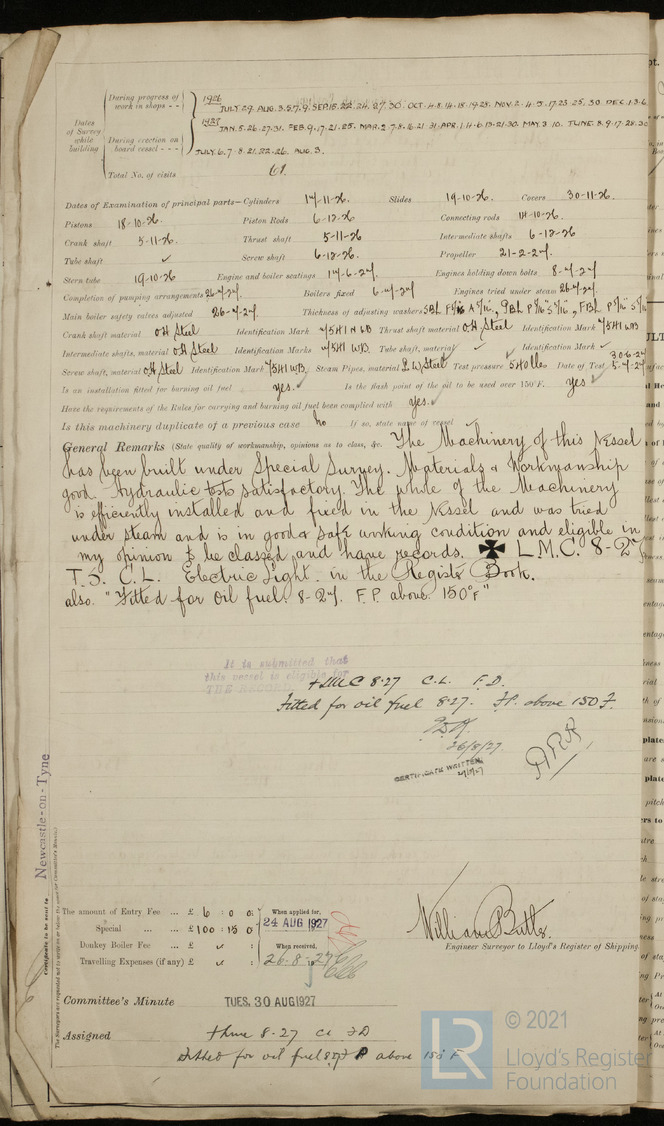 During progress of work in shops - -
1926
JULY.29. AUG.3.5.7.9. SEP.15.22.24.27.30. OCT.4.8.14.18.19.28. NOV.2.4.9.17.23.25.30. DEC.1.3.6.
1927
JAN.5.26.27.31. FEB.9.17.21.25. MAR.2.7.8.16.21.31. APR.1.4.6.13.21.30. MAY.3.10. JUNE.8.9.17.28.30
Dates of Survey while building
During erection on board vessel - - -
JULY.6.7.8.21.22.26. AUG.3.
Total No. of visits 61.
Dates of Examination of principal parts—Cylinders 17-11-26. Slides 19-10-26. Covers 30-11-26.
Pistons 18-10-26. Piston Rods 6-12-26 Connecting rods 18-10-26.
Crank shaft 5-11-26. Thrust shaft 5-11-26 Intermediate shafts 6-12-26
Tube shaft ✓ Screw shaft 6-12-26. Propeller 21-2-27.
Stern tube 19-10-26 Engine and boiler seatings 17-6-27. Engines holding down bolts 8-7-27
Completion of pumping arrangements 26-7-27. Boilers fixed 6-7-27. Engines tried under steam 26-7-27.
Main boiler safety valves adjusted 26-7-27. Thickness of adjusting washers
Crank shaft material OH Steel Identification Mark 7541 WB Thrust shaft material OH Steel Identification Mark 7541 WB
Intermediate shafts, material OH Steel Identification Marks 7541 WB. Tube shaft, material ✓ Identification Mark ✓
Screw shaft, material OH Steel Identification Mark 7541 WB. Steam Pipes, material L.W. Steel Test pressure 540 lbs Date of Test 30-6-27 5-7-27
Is an installation fitted for burning oil fuel yes. Is the flash point of the oil to be used over 150°F. yes
Have the requirements of the Rules for carrying and burning oil fuel been complied with yes.
Is this machinery duplicate of a previous case No If so, state name of vessel
General Remarks (State quality of workmanship, opinions as to class, &c. The Machinery of this Vessel
has been built under Special Survey. Materials & Workmanship
good. Hydraulic tests satisfactory. The whole of the Machinery
is efficiently installed and fixed in the Vessel and was tried
under steam and is in good & safe working condition and eligible in
my opinion to be classed and have records. ✠ L.M.C. 8-27
T.S. C.L. Electric Light. in the Register Book.
also. "Fitted for oil fuel. 8-27. F.P. above 150°F"
It is submitted that
this vessel is eligible for
THE RECORD
+LMC 8.27 C.L. F.D.
Fitted for oil fuel 8.27. F.P. above 150 F.
26/8/27
CERTIFICATE WRITTEN
Newcastle-on-Tyne
Certificate to be sent to
The amount of Entry Fee ... £ 6 : 0 : 0
Special ... £ 100 : 15 : 0
Donkey Boiler Fee ... £ ✓ :
Travelling Expenses (if any) £ ✓ :
When applied for,
24 AUG 1927
When received,
26.8.1927
William Butler.
Engineer Surveyor to Lloyd's Register of Shipping.
Committee's Minute TUES. 30 AUG 1927
Assigned +LMC 8.27 CL FD
Fitted for oil fuel 8.27 F P above 150 F.
LR
© 2021
Lloyd's Register
Foundation